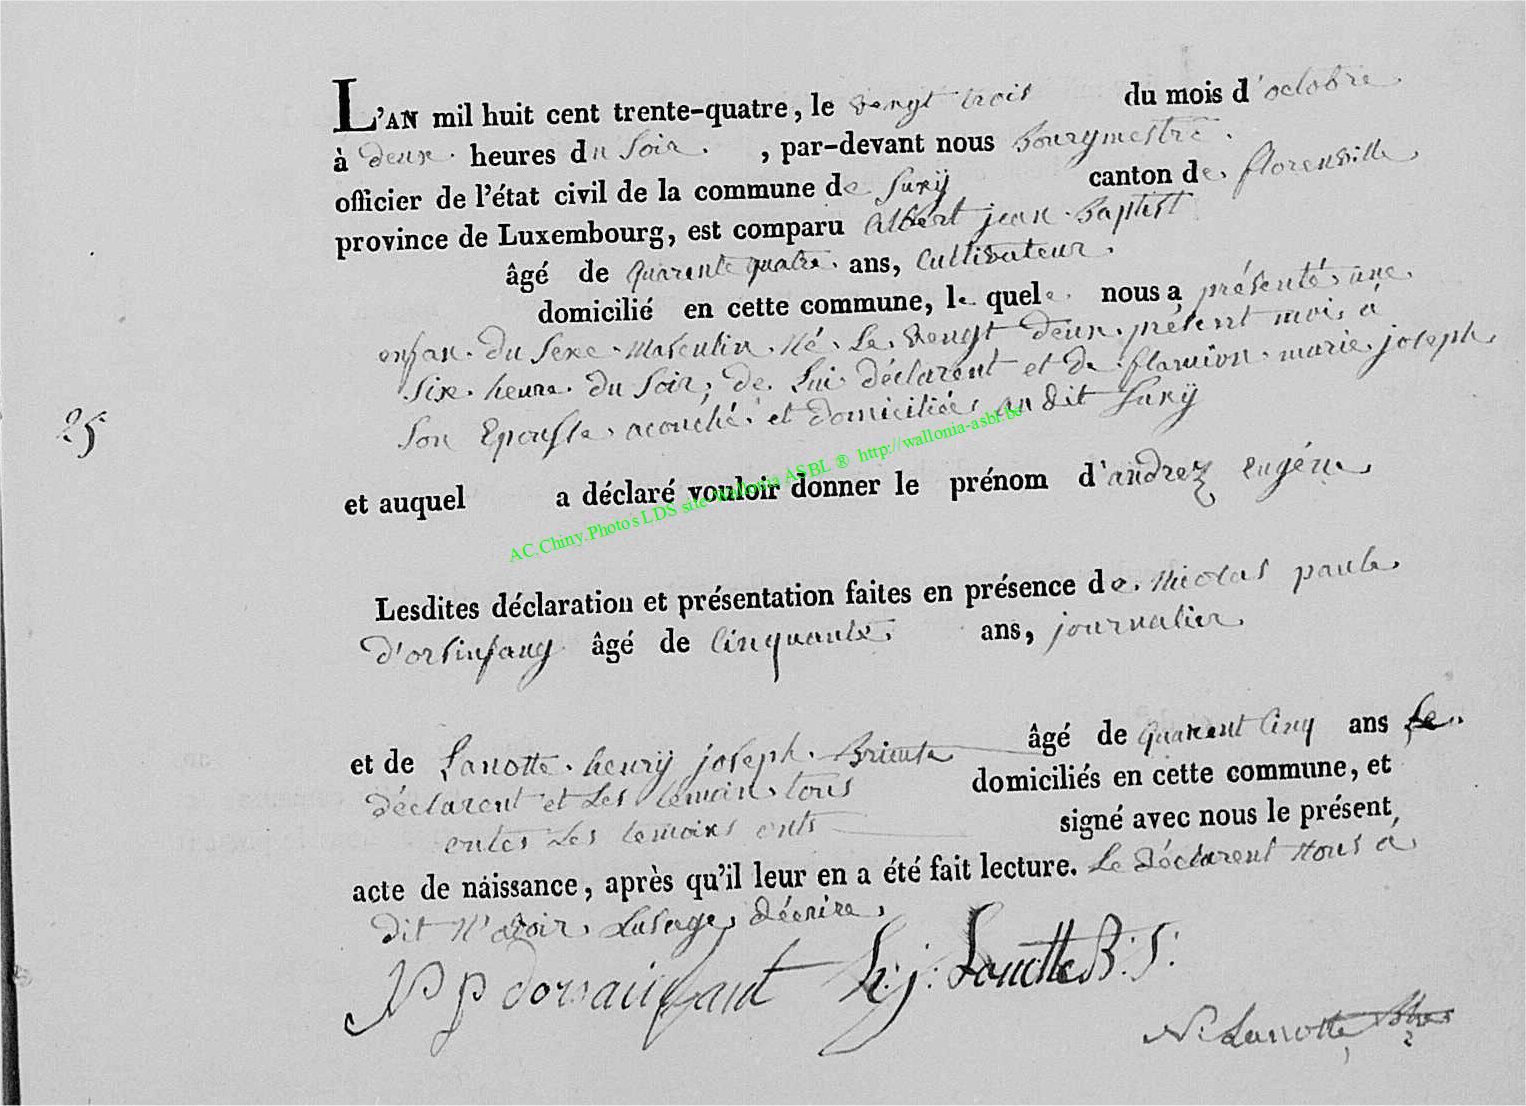 L'AN mil huit cent trente-quatre, le vengt trois du mois d'octobre
à deux heures du Soir, par-devant nous Bourgmestre
officier de l'état civil de la commune de Suxÿ canton de florenville
province de Luxembourg, est comparu Albert jean Baptist
âgé de quarente quatre ans, Cultivateur
domicilié en cette commune, le quele nous a présenté une
enfan du Sexe Masculin Né Le vengt deux présent mois à
Six heure du Soir, de Lui déclarent et de marie joseph
Son Epousse acouché et domiciliées au dit Suxÿ
25
et auquel a déclaré vouloir donner le prénom d'andrez eugéne
AC.Chiny.Photo's LDS site Wallonia ASBL ® http://wallonia-asbl.be
Lesdites déclaration et présentation faites en présence de Nicolas paule
d'orsinfang âgé de Cinquante ans, journalier
et de Lanotte henrÿ joseph âgé de quarent Cinq ans Le
déclarent et Les temoin tous domiciliés en cette commune, et
Les temoins onts signé avec nous le présent
acte de naissance, après qu'il leur en a été fait lecture. Le Déclarent Nous à
dit N'avoir Lusage décrire
N P dorsainfant h: j: Lanotte B: S:
N: Lanotte